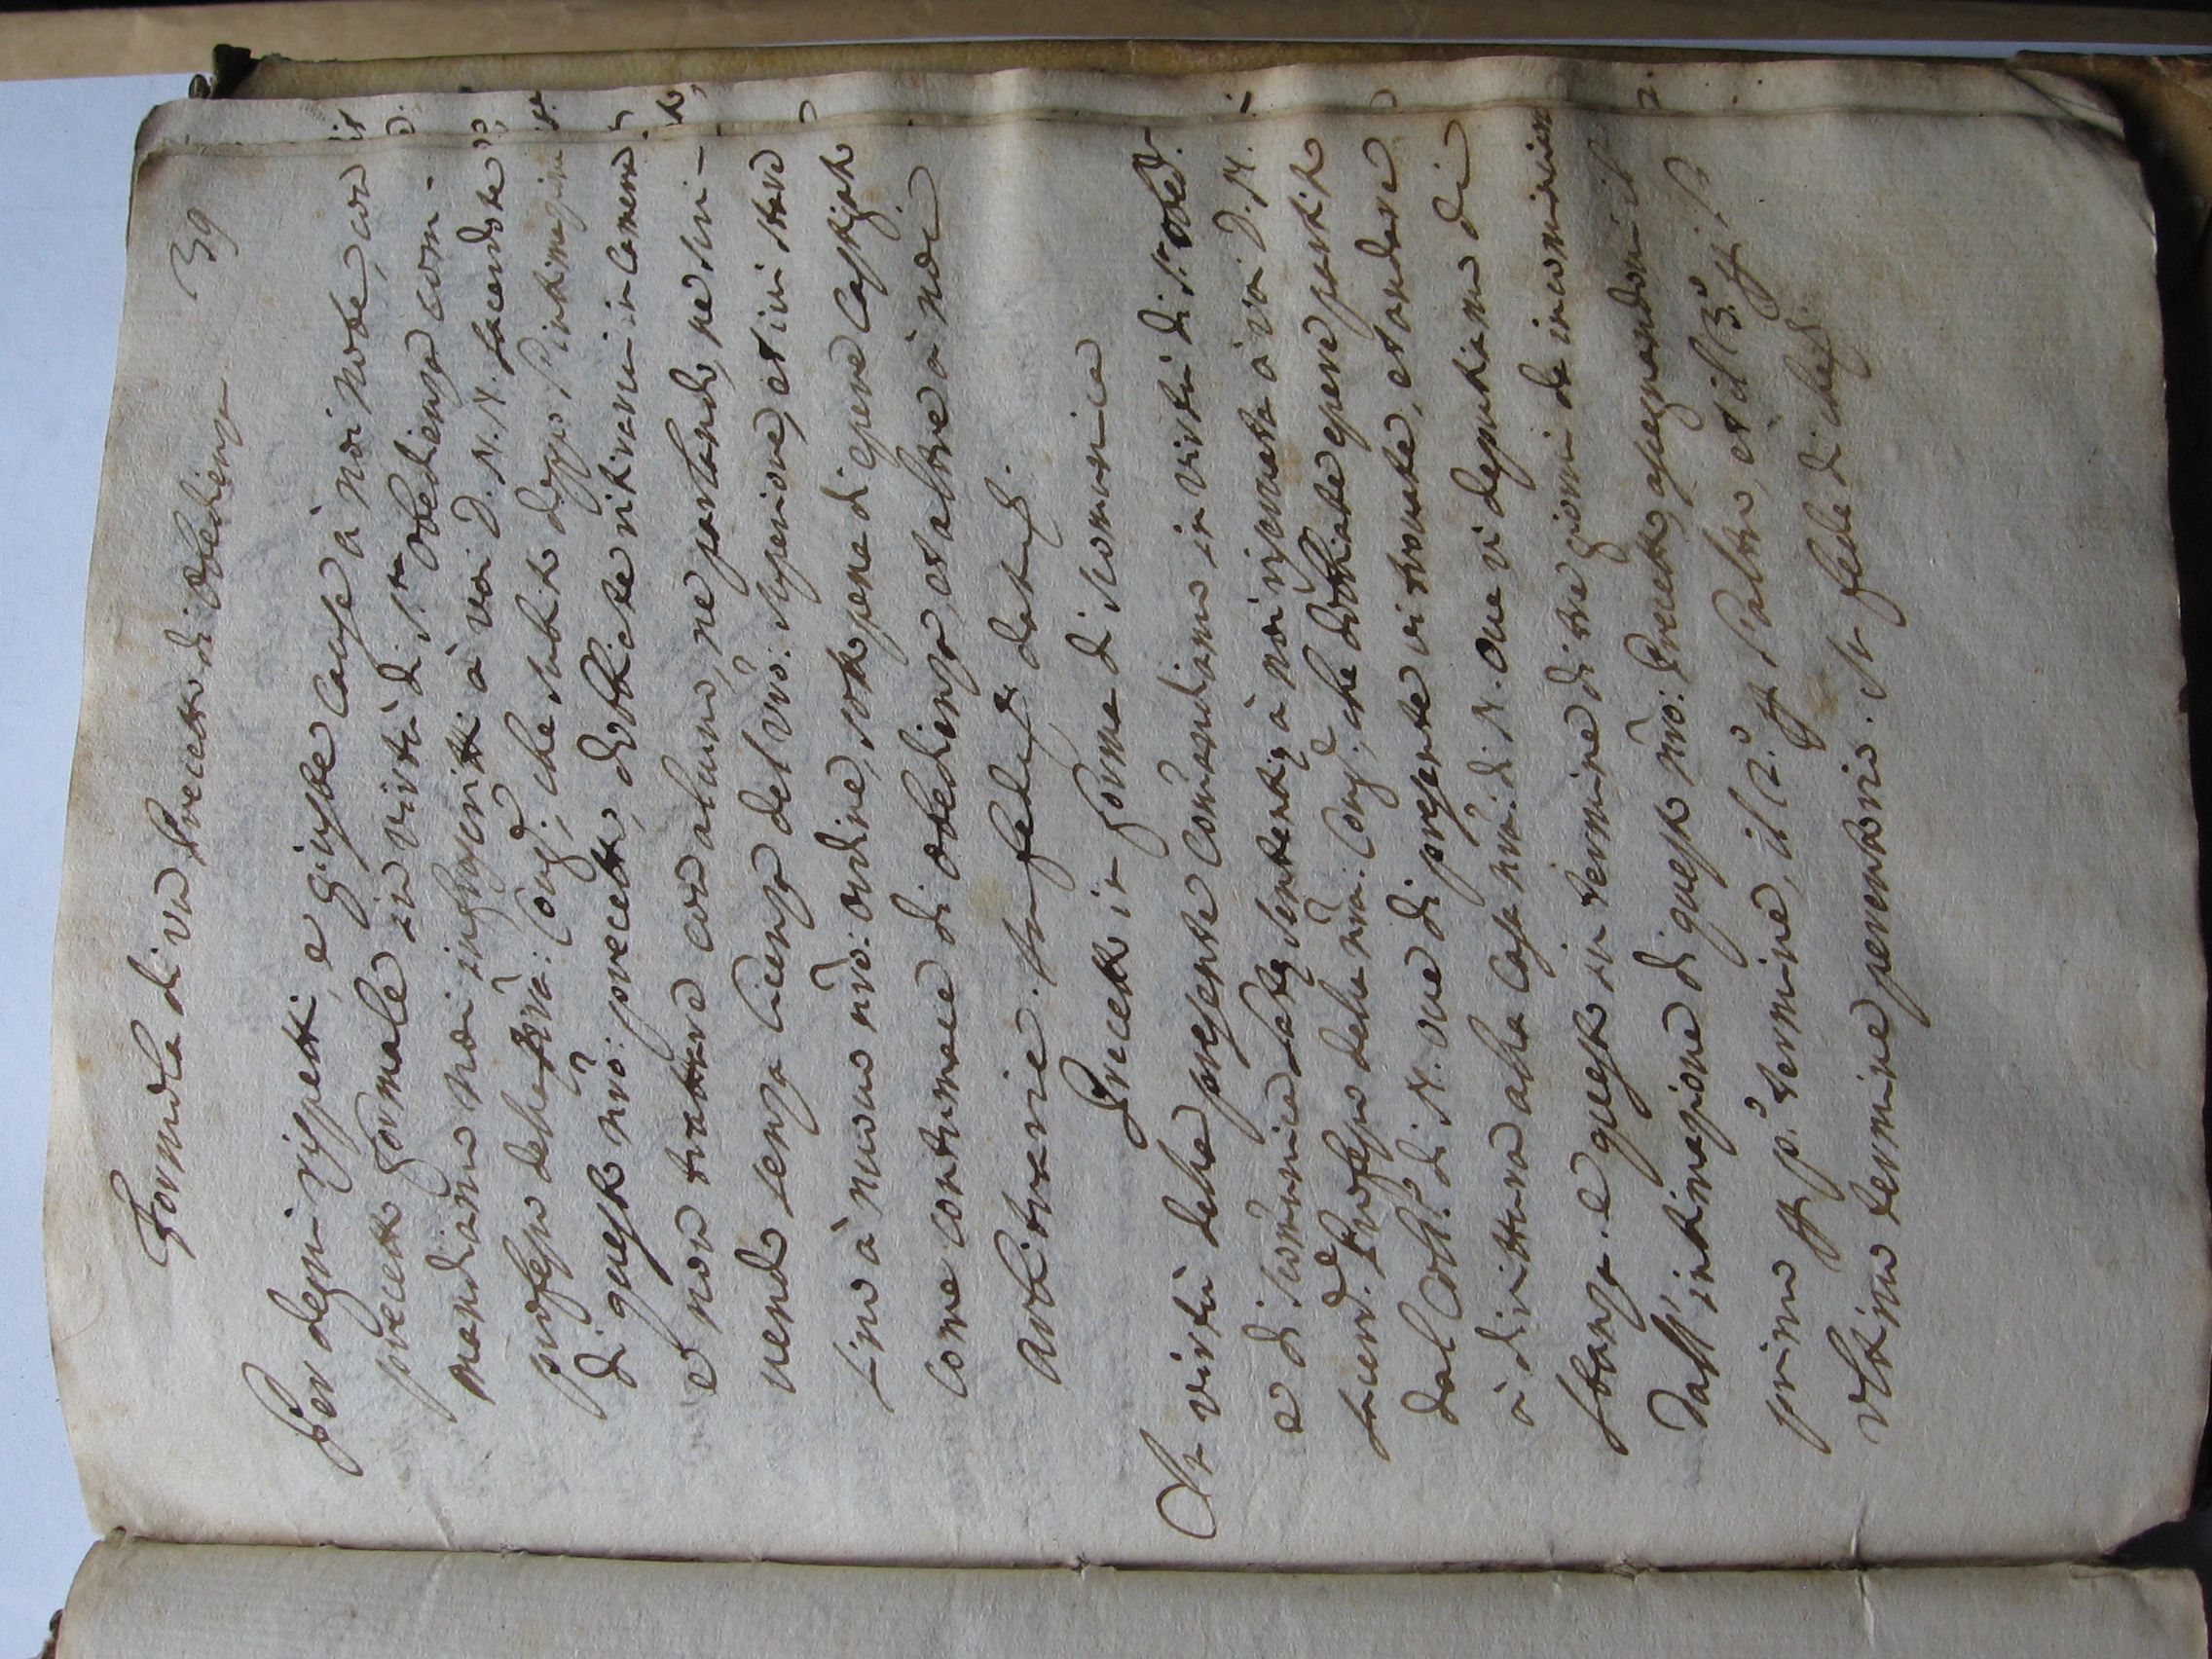 39
Formola di un Precetto di Obedienza
Per degni rispetti, e giuste cause à noi note, con
precetto formale in virtù di S.ta Obedienza com-
mandiamo noi infrascritti à voi D. N. N. sacerdote
professo della nrã: Cong.e, che subito doppo l'intimazione
di questo nrõ: precetto, dobbiate ritirarvi in camera
e non trattare con alcuno, ne parlando, ne scri-
vendo senza licenza del vrõ: superiore, et ivi stare
sino à nuovo nrõ: ordine, sotto pena di essere castigato
come contumace di obedienza, et altre à noi
arbitrarie. In fede datu
Precetto in forma di scomunica
In virtù della presente Comandiamo in virtù di S.ta obed.
e di scomunica latę sententię à noi riservata à voi D. N.
sacerd.e Professo della nrã: Cong.e, che dobbiate essere partito
dal Coll.o di N. ove di presente vi trovate, et andare
à dirittura alla casa nrã: di N. ove vi deputiamo di
stanza. e questo in termine di tre giorni da incominciarsi
dall'intimazione di questo nrõ: Precetto, assegnandovi il
primo p p.o termine, il 2.o p l'altro, et il 3.o p l'
ultimo termine perentorio. In fede di che